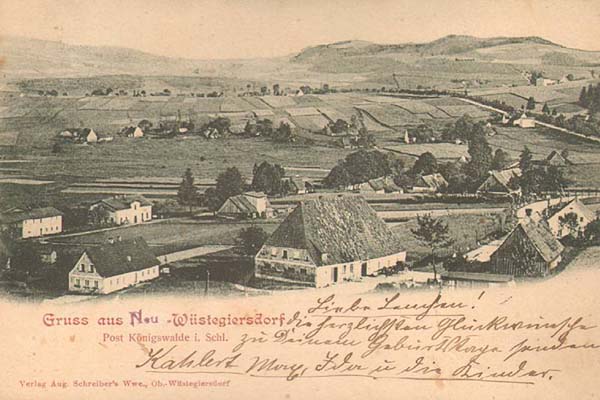 Gruss aus Neu-Wüstegiersdorf
Post Königswalde i. Schl.
Liebe !
die herzlichsten Glückwünsche
zu Deinem Geburtstage senden
Kahlert Max, Ida u die Kinder.
Verlag Aug. Schreiber's Wwe., Ob.-Wüstegiersdorf